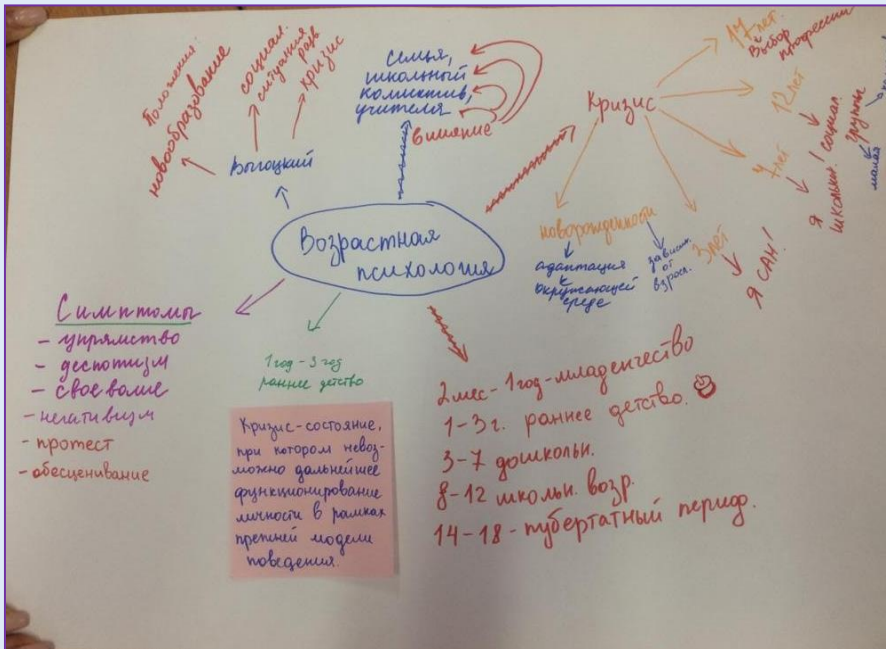 Положения:
новообразование
социал.
ситуация
разв
кризис
Выгоцкий
семья,
школьный
коллектив,
учителя
влияние
Кризис
17 лет.
Выбор
профессии
12 лет
социал
группы
малая
7 лет
Я
школьник!
3 лет
Я САМ!
новорожденности
адаптация
к
окружающей
среде
зависим.
от
взросл.
Возрастная
психология
Симптомы
- упрямство
- деспотизм
- своеволие
- негативизм
- протест
- обесценивание
1 год - 3 год
раннее детство
Кризис-состояние,
при котором невоз-
можно дальнейшее
функционирование
личности в рамках
прежней модели
поведения.
2 мес - 1 год - младенчество
1-3 г. раннее детство.
3-7 дошкольн.
8-12 школьн. возр.
14-18 - пубертатный период.